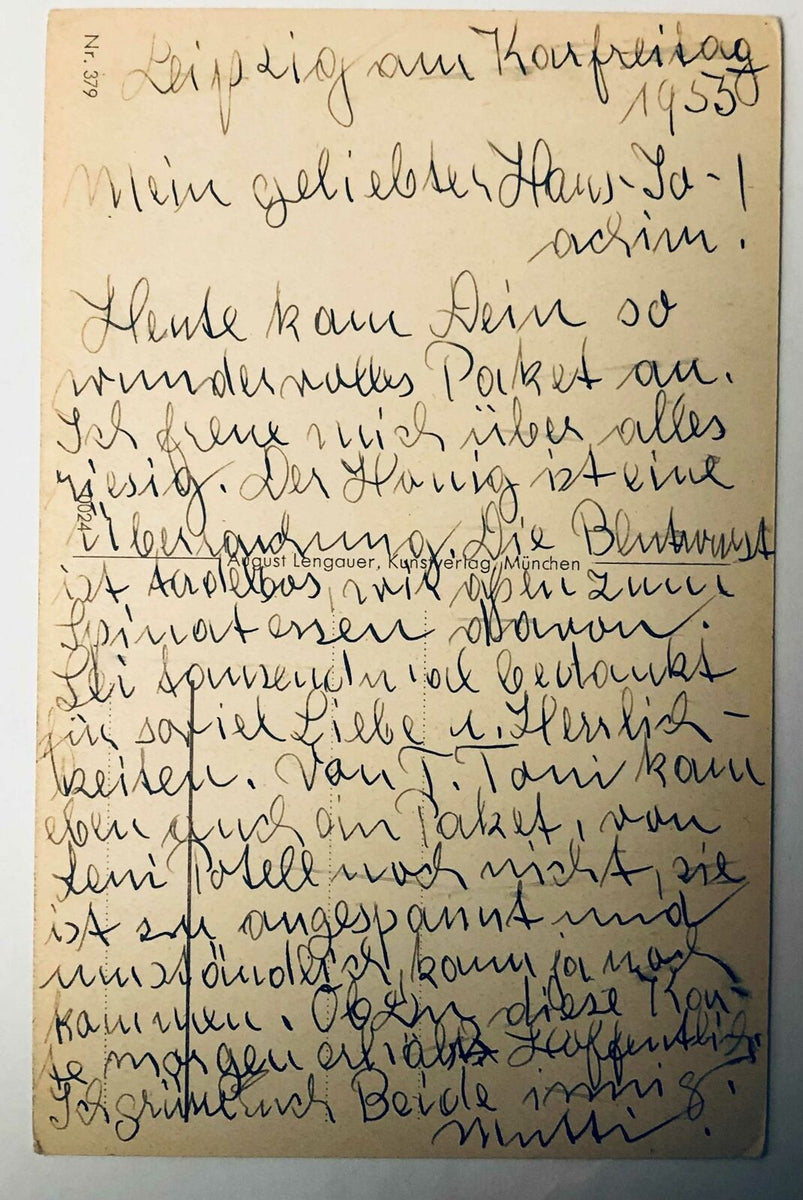 Nr. 379
Leipzig am Karfreitag
1953
Mein geliebter Hans-Jo-!
achim!
Heute kam Dein so
wundervolles Paket an.
Ich freue mich über alles
riesig. Der Honig ist eine
Überraschung. Die Blutwurst
August Lengauer, Kunstverlag, München
ist tadellos, wir aßen zum
Spinatessen davon.
Sei tausendmal bedankt
für soviel Liebe u. Herrlich-
keiten. Von T. Toni kam
eben auch ein Paket, von
Leni noch nicht, sie
ist zu angespannt und
umständlich, kann ja noch
kommen. Ob Du diese Kar-
te morgen erhälst? Hoffentlich.
Ich grüße Euch Beide innig.
Mutti.